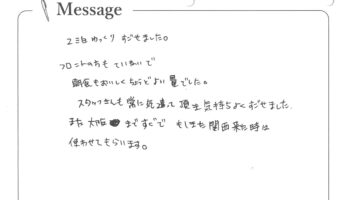 Message
2泊ゆっくりすごせました。
フロントの方もていねいで
朝食もおいしくちょうどよい量でした。
スタッフさんも常に気遣って頂き気持ちよくすごせました。
また大阪まですぐで もしまた関西来た時は
使わせてもらいます。